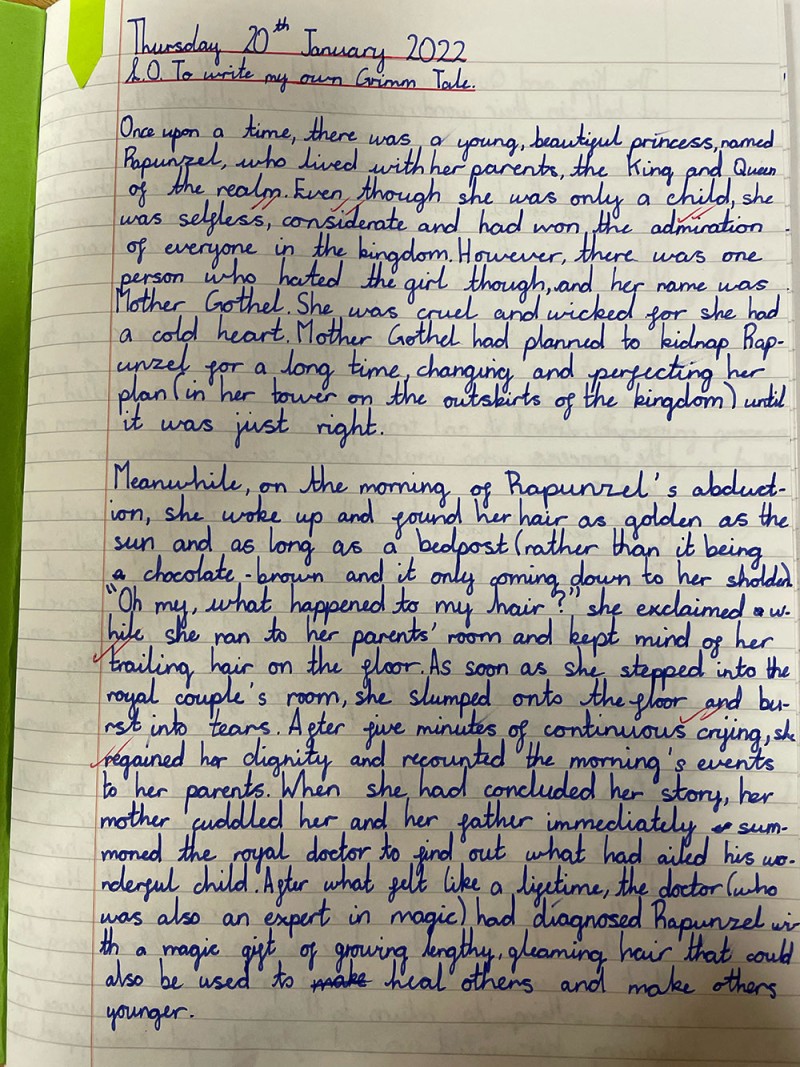 Thursday 20th January 2022
L.O. To write my own Grimm Tale.
Once upon a time, there was a young, beautiful princess, named
Rapunzel, who lived with her parents, the King and Queen
of the realm. Even though she was only a child, she
was selfless, considerate and had won the admiration
of everyone in the kingdom. However, there was one
person who hated the girl though, and her name was
Mother Gothel. She was cruel and wicked for she had
a cold heart. Mother Gothel had planned to kidnap Rap-
unzel for a long time, changing and perfecting her
plan (in her tower on the outskirts of the kingdom) until
it was just right.
Meanwhile, on the morning of Rapunzel's abduct-
ion, she woke up and found her hair as golden as the
sun and as long as a bedpost (rather than it being
a chocolate-brown and it only coming down to her sholder).
"Oh my, what happened to my hair?" she exclaimed w-
hile she ran to her parents' room and kept mind of her
trailing hair on the floor. As soon as she stepped into the
royal couple's room, she slumped onto the floor and bu-
rst into tears. After five minutes of continuous crying, she
regained her dignity and recounted the morning's events
to her parents. When she had concluded her story, her
mother cuddled her and her father immediately sum-
moned the royal doctor to find out what had ailed his wo-
nderful child. After what felt like a lifetime, the doctor (who
was also an expert in magic) had diagnosed Rapunzel wi-
th a magic gift of growing lengthy, gleaming hair that could
also be used to make heal others and make others
younger.